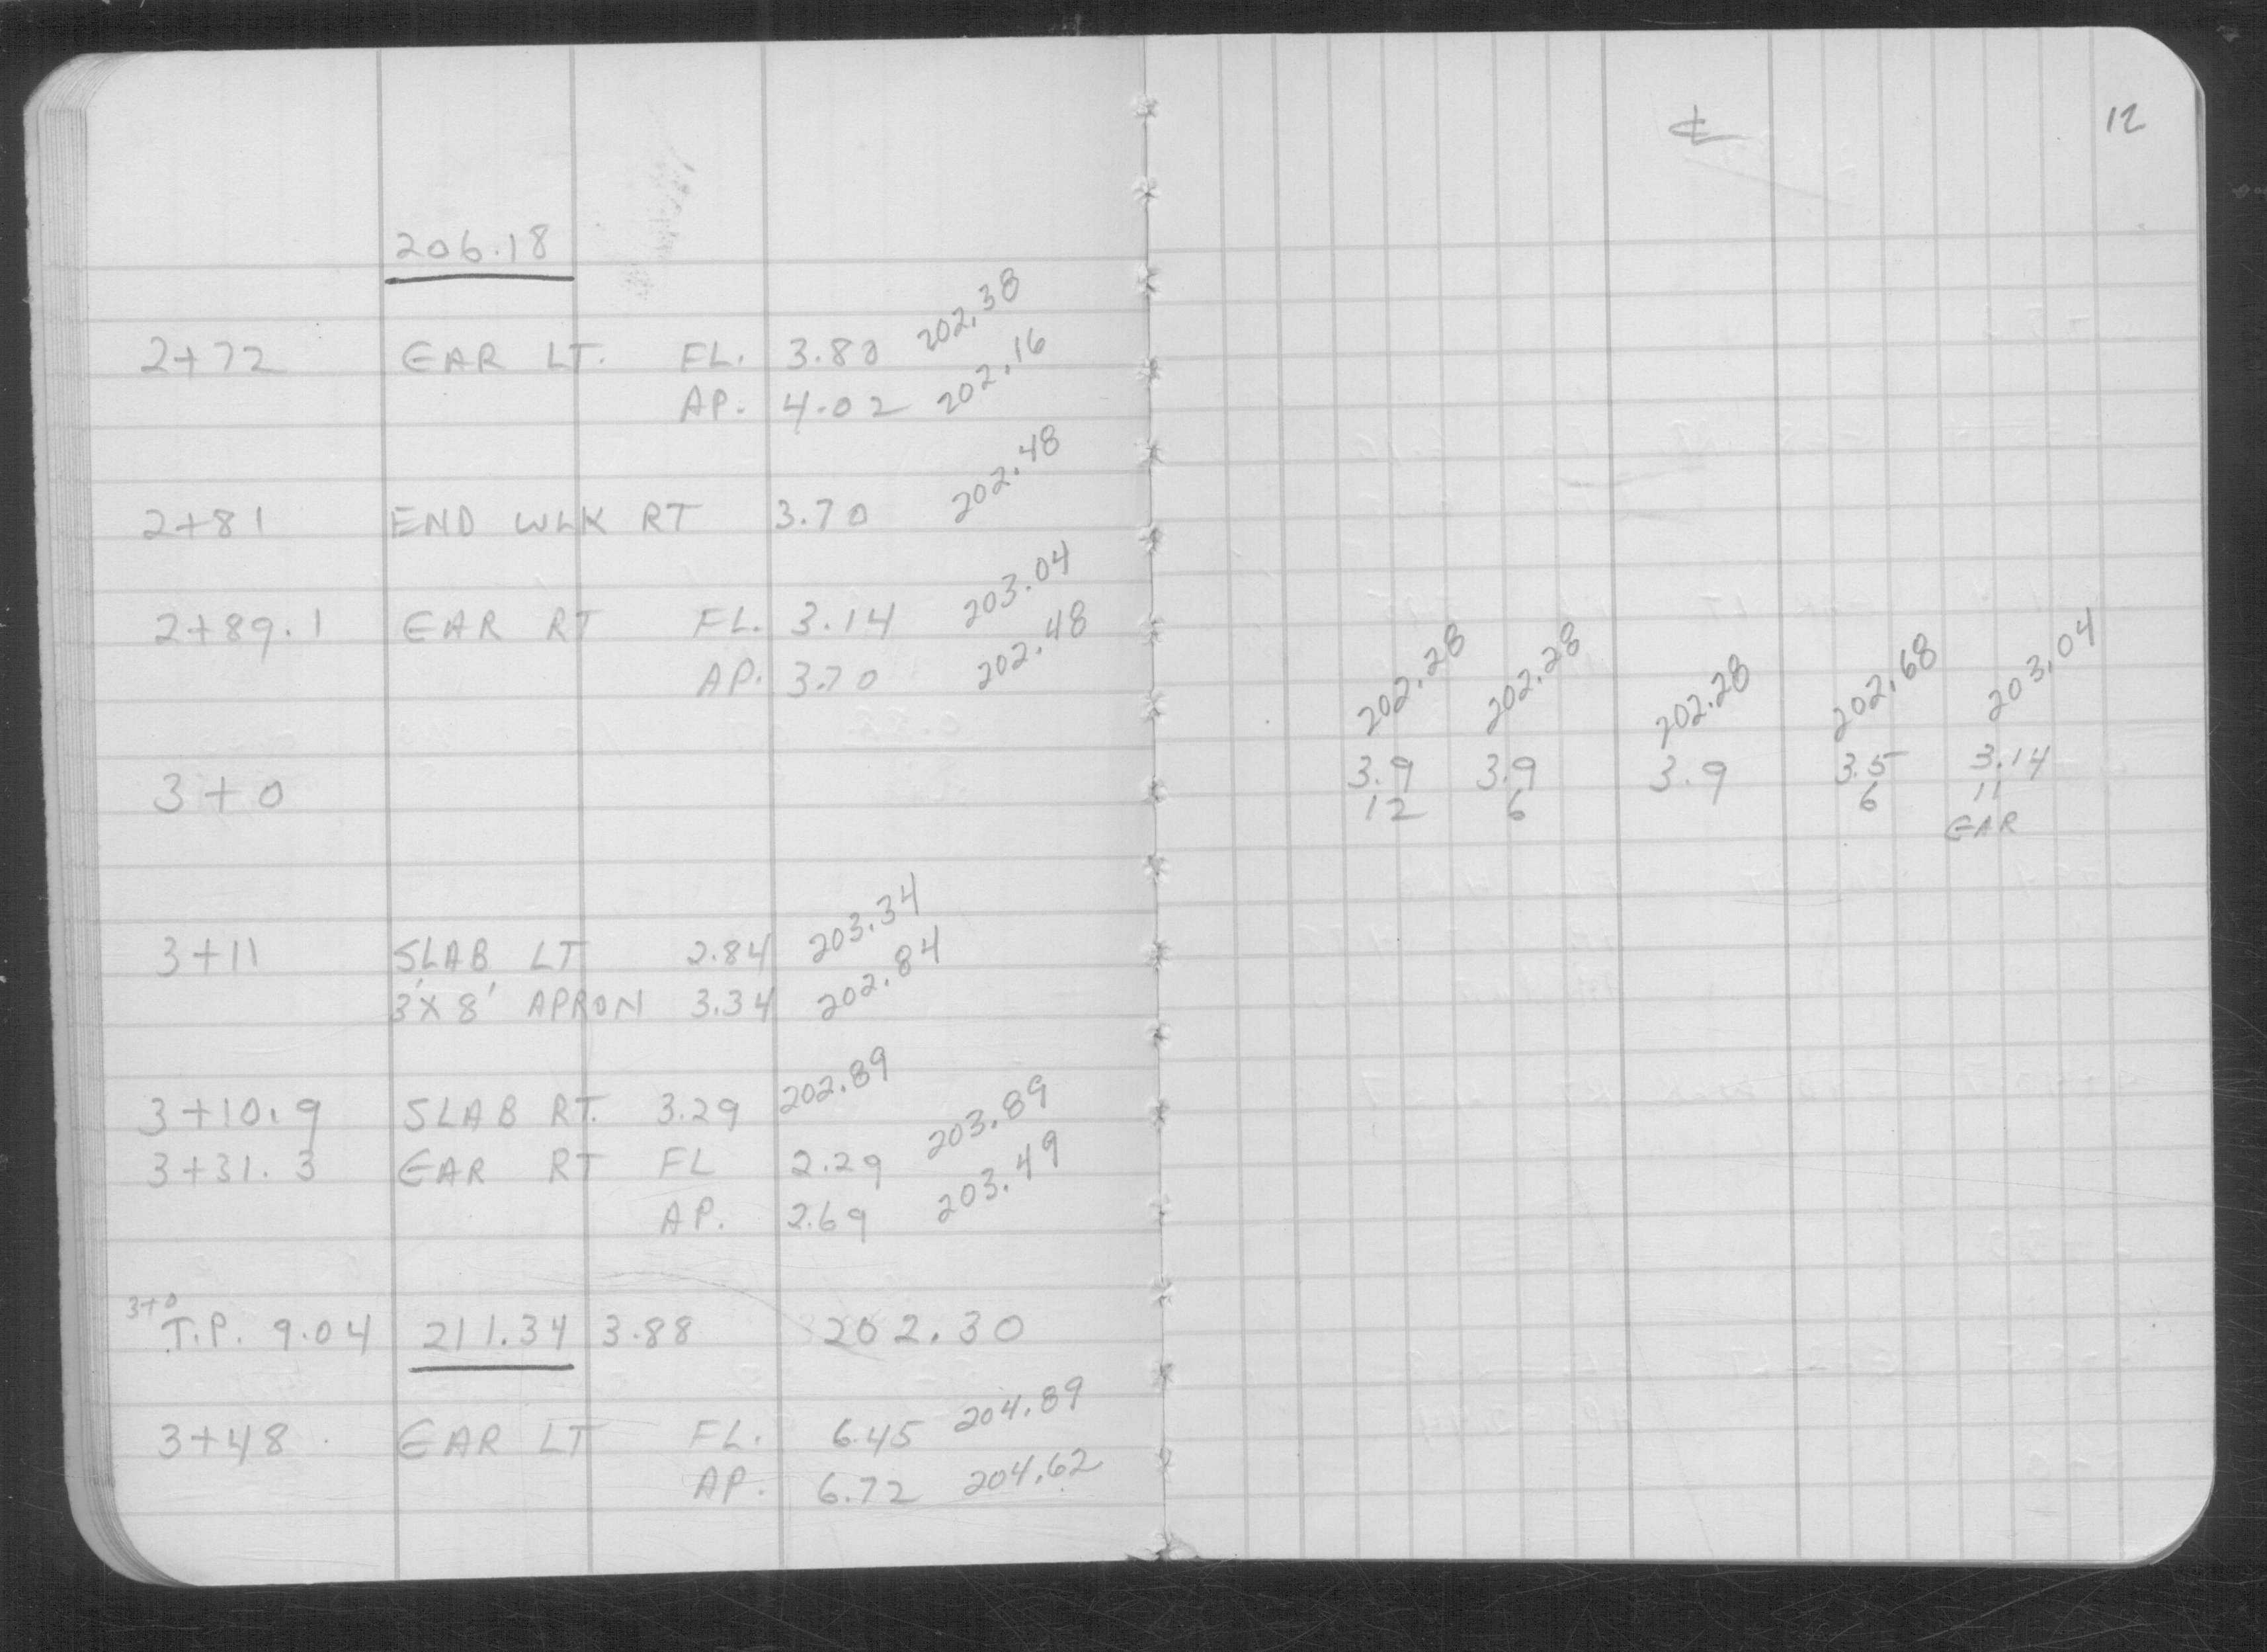 206.18
2+72 EAR LT. FL. 3.80 202.38
AP. 4.02 202.16
2+81 END WLK RT 3.70 202.48
2+89.1 EAR RT FL. 3.14 203.04
AP. 3.70 202.48
3+0
3+11 SLAB LT 2.84 203.34
3'X8' APRON 3.34 202.84
3+10.9 SLAB RT. 3.29 202.89
3+31.3 EAR RT FL 2.29 203.89
AP. 2.69 203.49
3+0
T.P. 9.04 211.34 3.88 202.30
3+48 EAR LT FL. 6.45 204.89
AP. 6.72 204.62
℄ 12
202.28 202.28 202.28 202.68 203.04
3.9 3.9 3.9 3.5 3.14
12 6 6 11
EAR